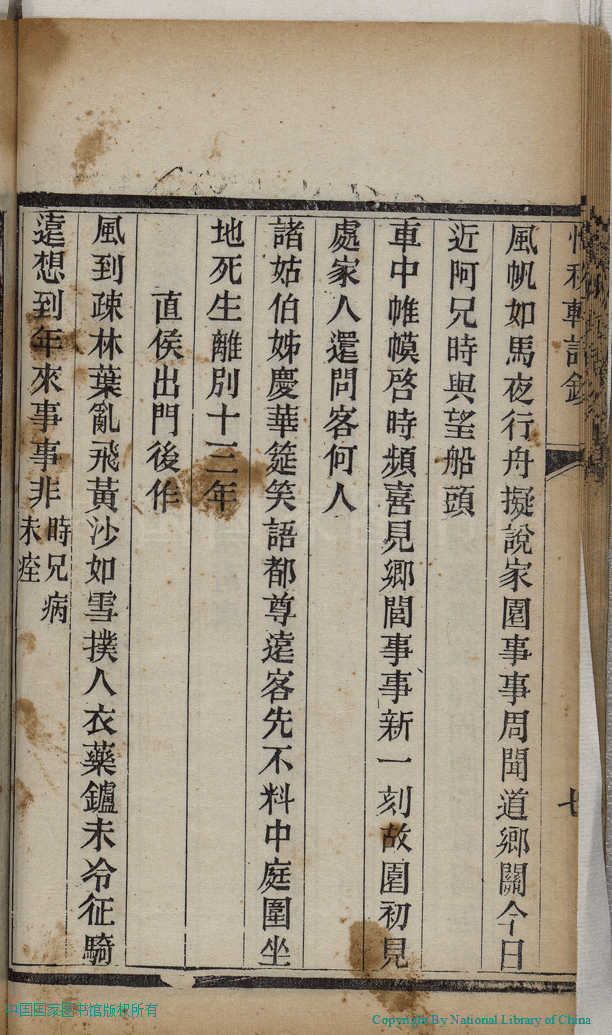 風帆如馬夜行舟擬說家園事事周聞道鄉關今日
近阿兄時與望船頭
車中帷幙啓時頻喜見鄉閭事事新一刻故園初見
處家人還問客何人
諸姑伯姊慶華筵笑語都尊遠客先不料中庭圍坐
地死生離別十三年
直侯出門後作
風到疎林葉亂飛黃沙如雪撲人衣藥鑪未冷征騎
遠想到年來事事非時兄病
未痊
七
中国国家图书馆版权所有
Copyright By National Library of China